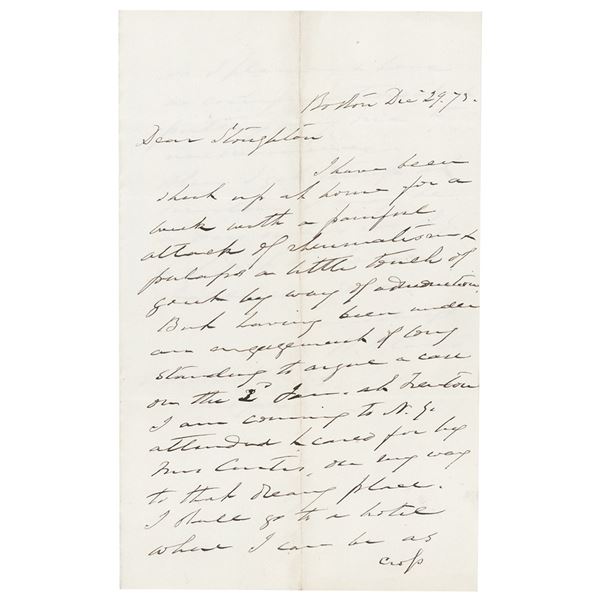 Boston Dec 29. 73.
Dear Stoughton
I have been
shut up at home for a
week with a painful
attack of rheumatism &
perhaps a little touch of
gout by way of
But having been under
an engagement of long
standing to argue a case
on the 2d Jan. at Trenton
I am coming to N. Y.
attended & cared for by
Mrs Curtis, on my way
to that dreary place.
I shall go to a hotel
where I can be as
cross